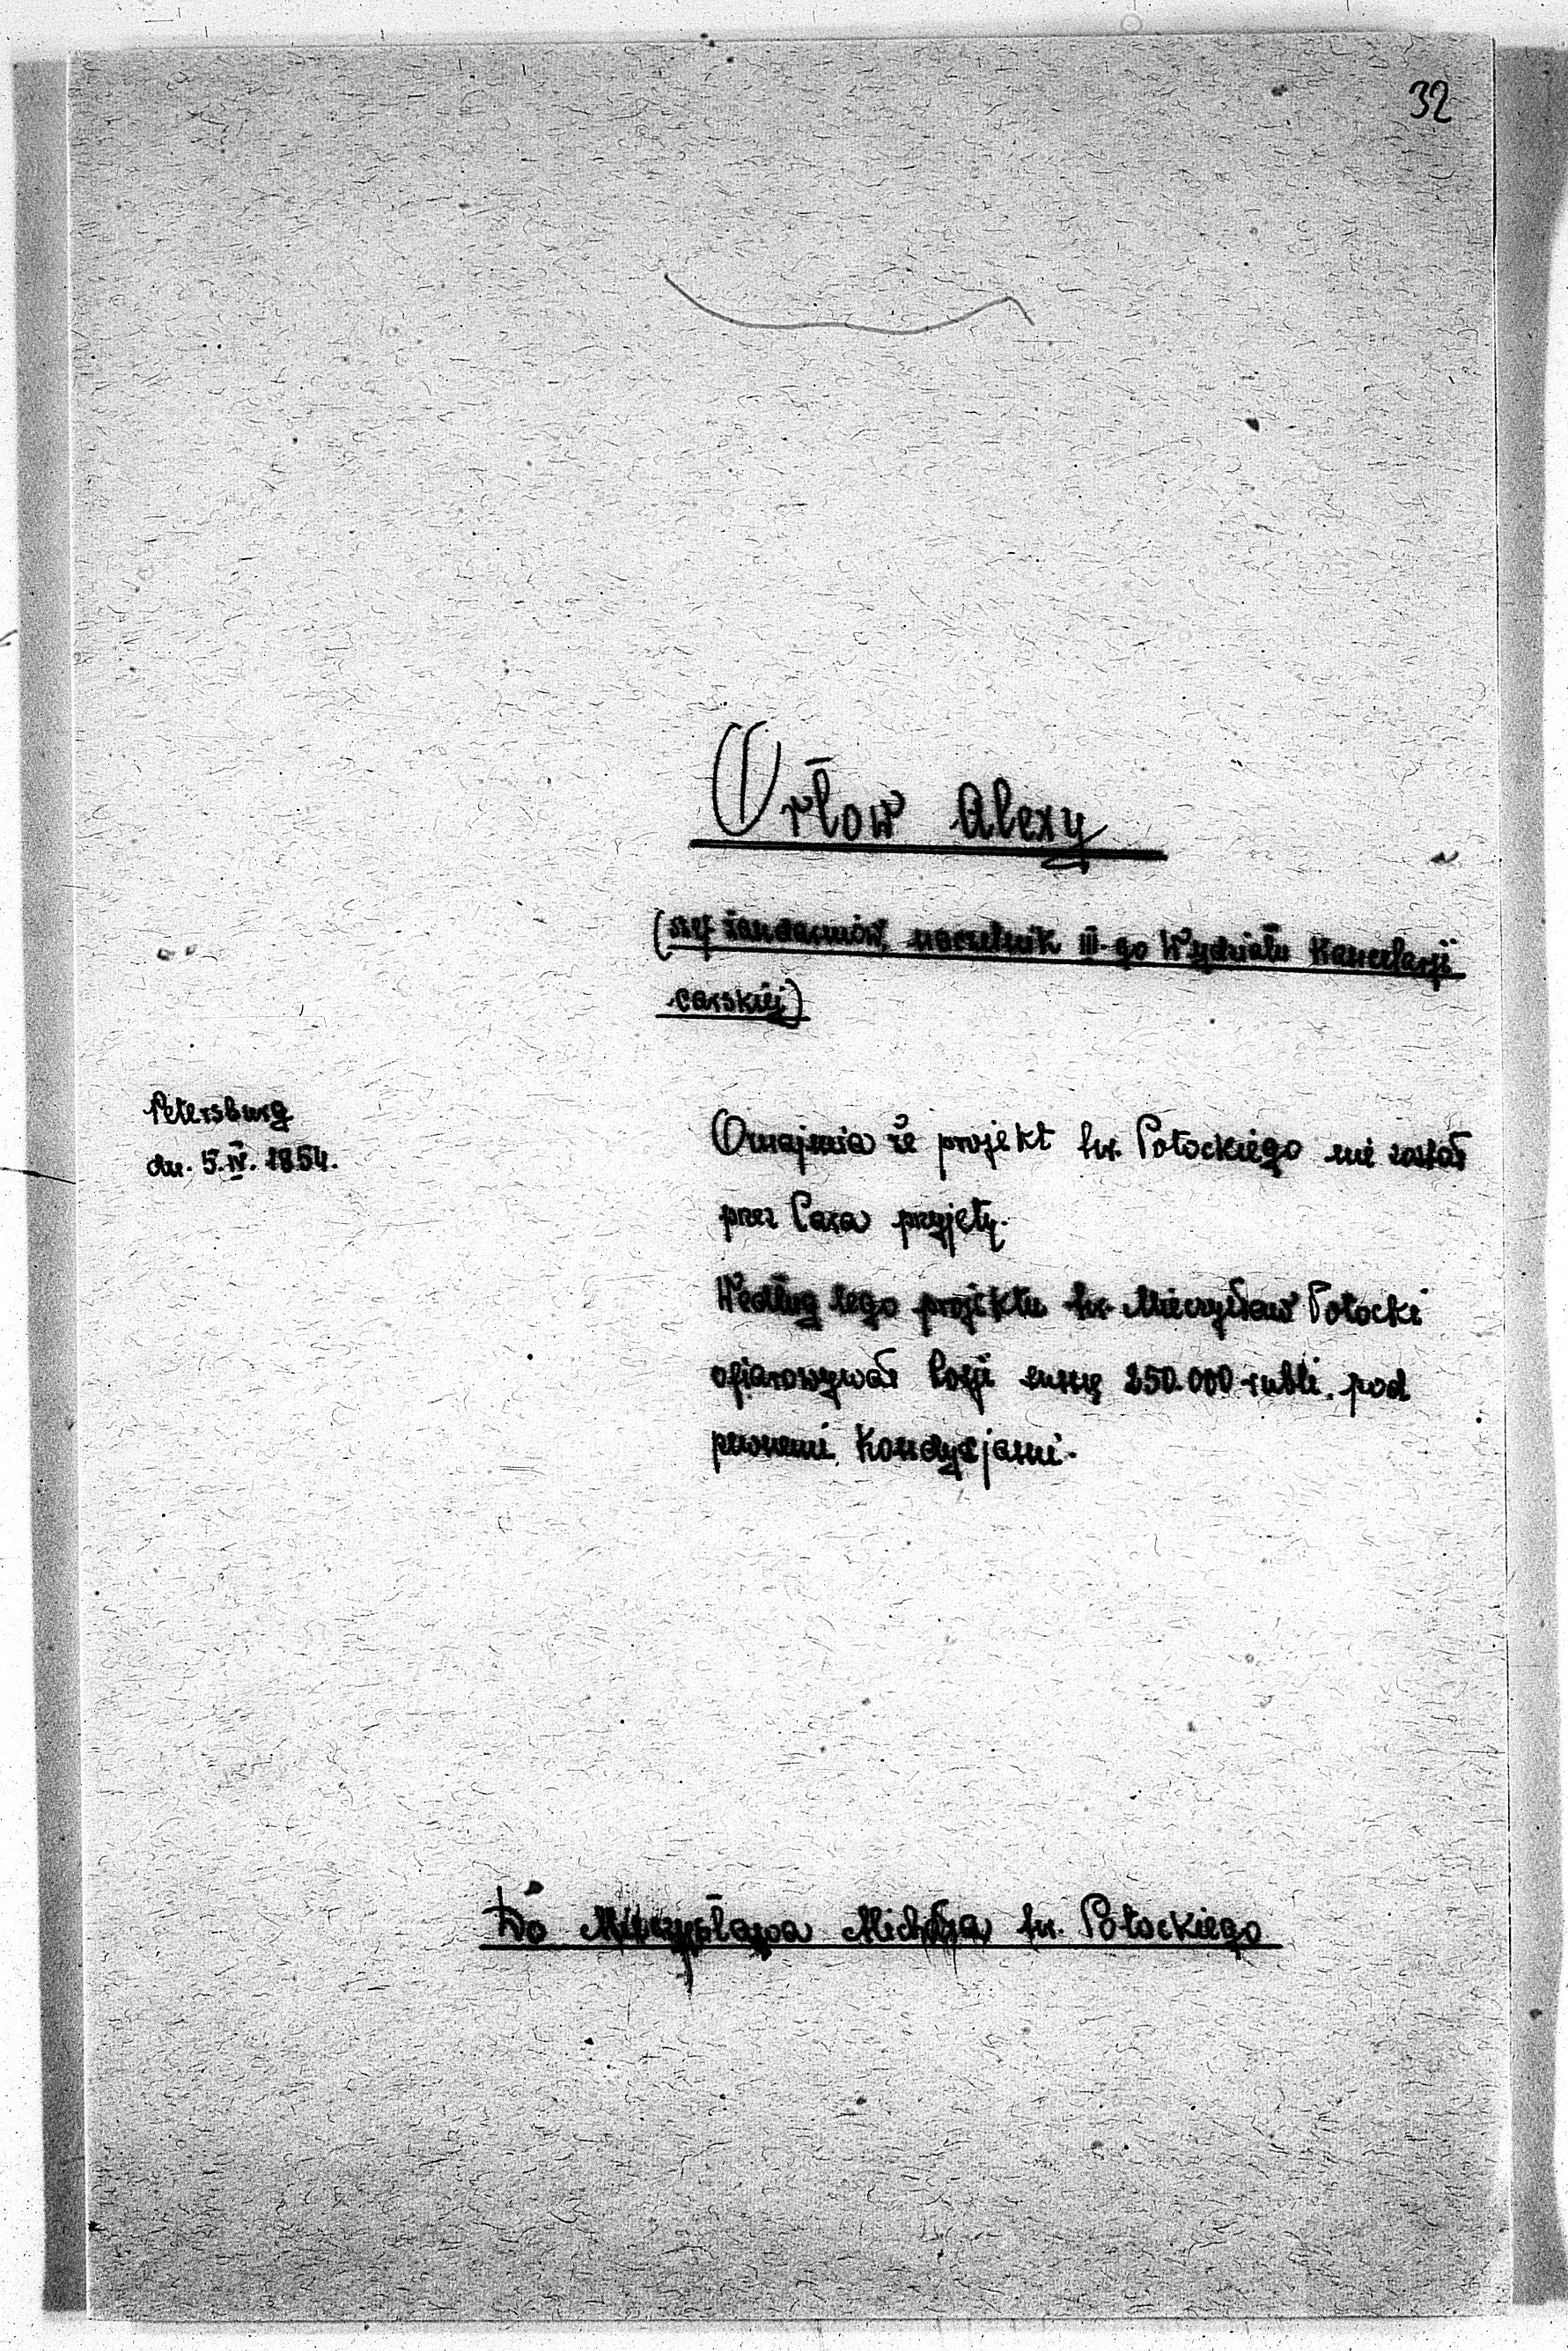 32
Orłow Alexy
(szef żandarmów, naczelnik III-go Wydziału Kancelarji
carskiej)
Petersburg
dn. 5.IV. 1854.
Oznajmia że projekt hr. Potockiego nie został
przez Cara przyjęty.
Według tego projektu hr. Mieczysław Potocki
ofiarowywał Rosji sumę 250.000 rubli pod
pewnemi kondycjami.
Do Mieczysława Michała hr. Potockiego